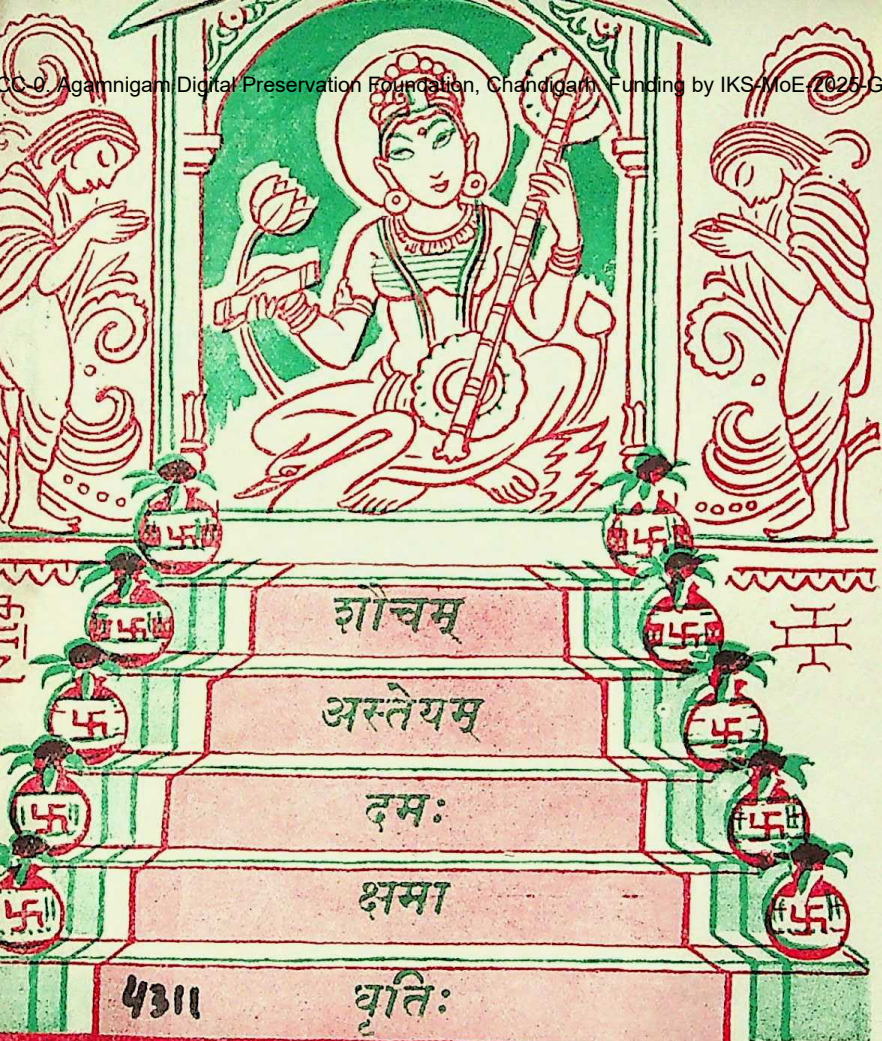 CC-0. Agamnigam Digital Preservation Foundation, Chandigarh. Funding by IKS-MoE-2025-G
शौचम्
अस्तेयम्
दमः
क्षमा
५३॥ धृतिः